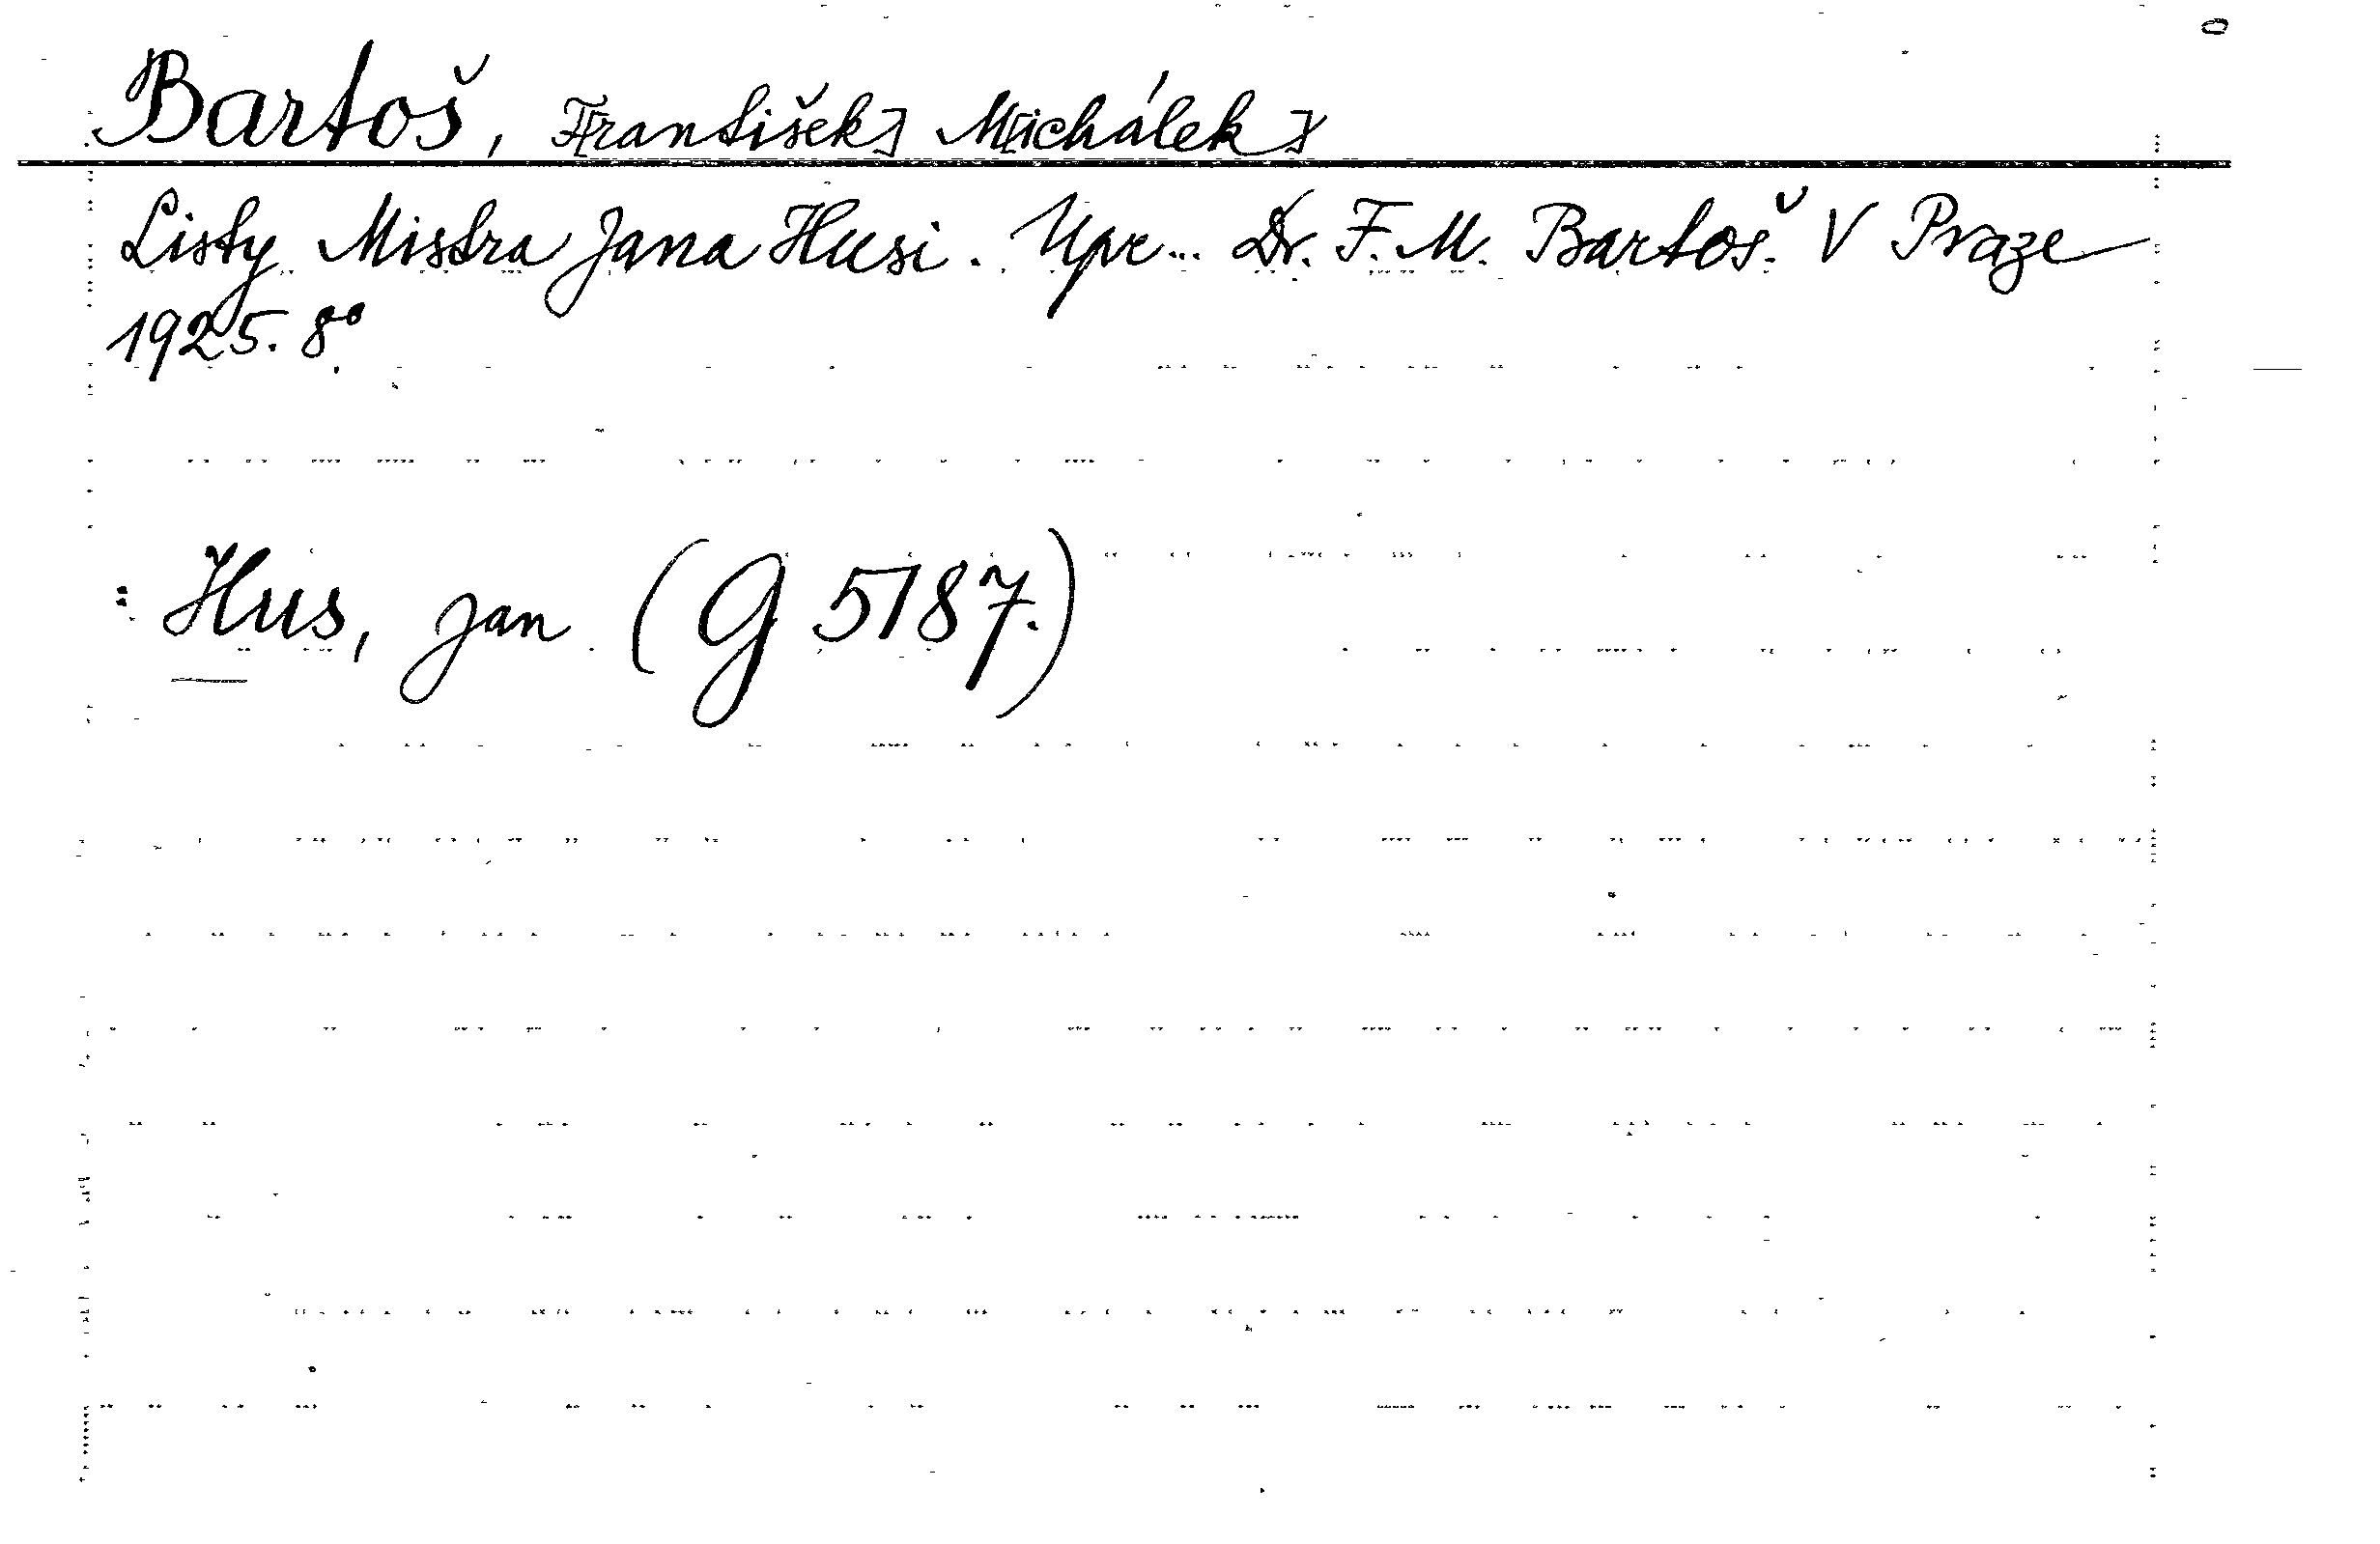 Bartoš, F[rantišek] M[ichálek]
Listy Mistra Jana Husi. Upr... Dr. F. M. Bartoš. V Praze
1925. 8°
: Hus, Jan (G 5187.)